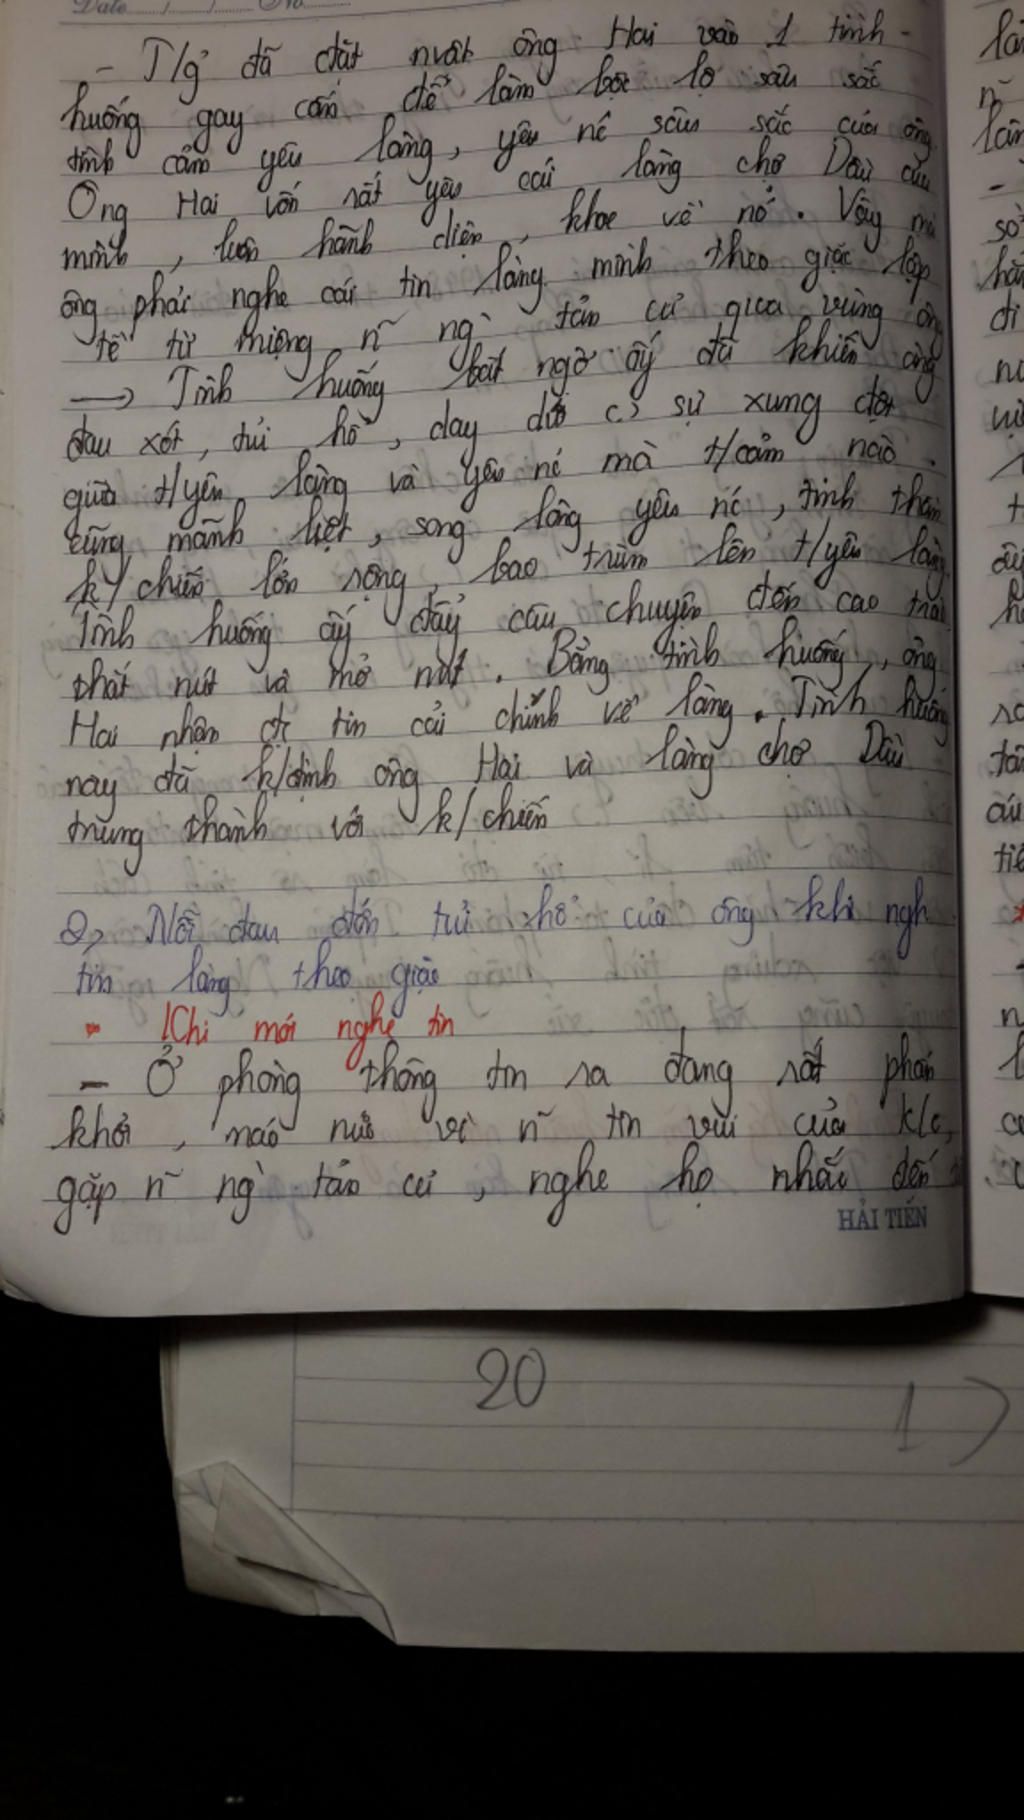 Date / / No
- T/g đã đặt nvật ông Hai vào 1 tình
huống gay cấn để làm bộc lộ sâu sắc
tình cảm yêu làng, yêu nc sâu sắc của ông
Ông Hai vốn rất yêu cái làng chợ Dầu của
mình, luôn hãnh diện, khoe về nó. Vậy mà
ông phải nghe cái tin làng mình theo giặc lập
tề từ miệng n~ ng` tản cư qua vùng ông
→ Tình huống bất ngờ ấy đã khiến ông
đau xót, tủi hổ, day dứt sự xung đột
giữa t/yêu làng và yêu nc mà t/cảm nào
cũng mãnh liệt, song lòng yêu nc, tinh thần
k/chiến lớn rộng, bao trùm lên t/yêu làng
Tình huống ấy đẩy câu chuyện đến cao trào
thắt nút và mở nút. Bằng tình huống, ông
Hai nhận đc tin cải chính về làng. Tình huống
này đã k/định ông Hai và làng chợ Dầu
trung thành với k/chiến
2, Nỗi đau đớn tủi hổ của ông khi ngh
tin làng theo giặc
Khi mới nghe tin
- Ở phòng thông tin ra đang rất phấn
khởi, náo nức vì n~ tin vui của k/c,
gặp n~ ng` tản cư, nghe họ nhắc đến
HẢI TIẾN
20
1)